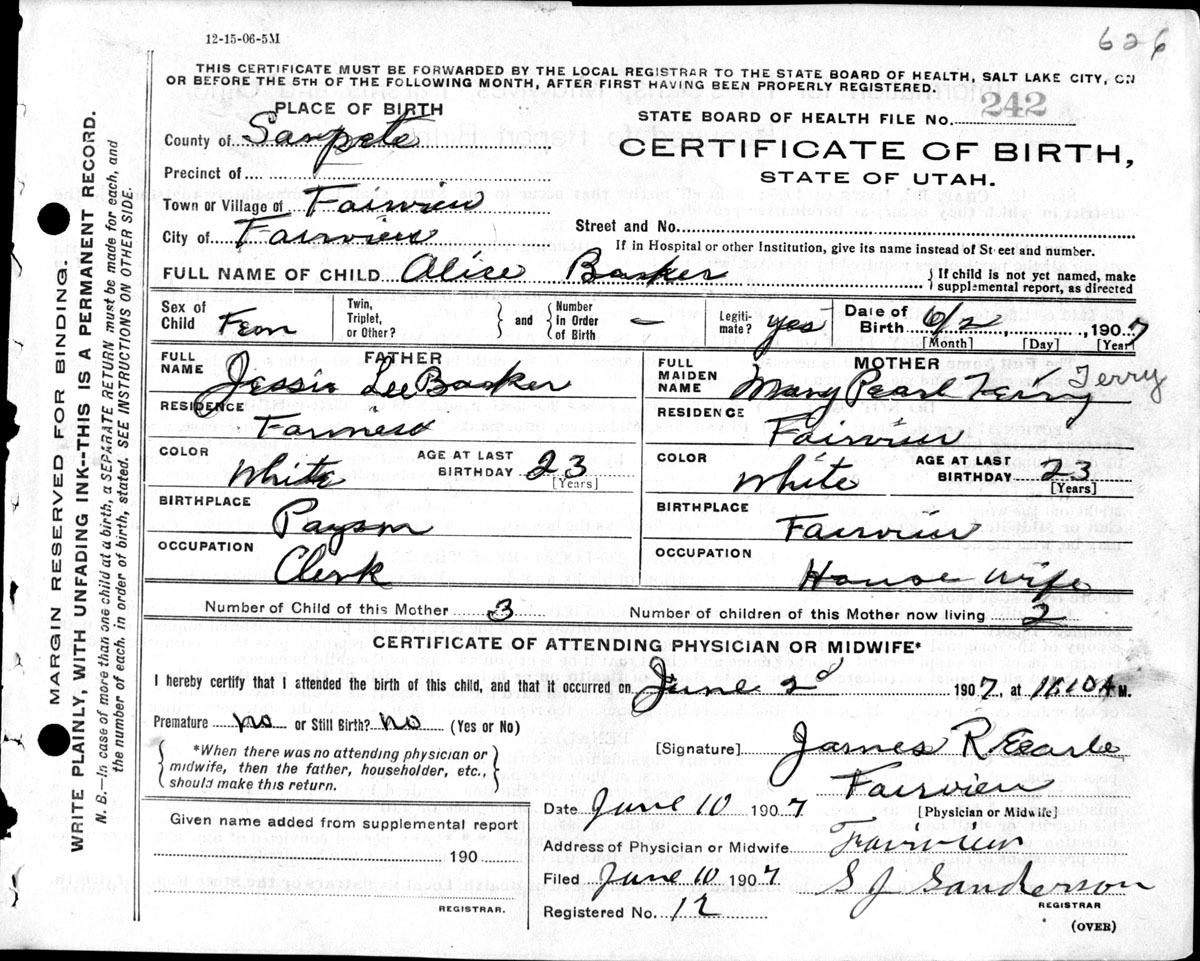 12-15-06-5M
626
THIS CERTIFICATE MUST BE FORWARDED BY THE LOCAL REGISTRAR TO THE STATE BOARD OF HEALTH, SALT LAKE CITY, ON
OR BEFORE THE 5TH OF THE FOLLOWING MONTH, AFTER FIRST HAVING BEEN PROPERLY REGISTERED.
PLACE OF BIRTH
STATE BOARD OF HEALTH FILE NO. 242
County of Sanpete
CERTIFICATE OF BIRTH,
STATE OF UTAH.
Precinct of
Town or Village of Fairview
Street and No.
City of Fairview
If in Hospital or other Institution, give its name instead of Street and number.
FULL NAME OF CHILD Alise Barker
If child is not yet named, make
supplemental report, as directed
Sex of Child Fem Twin, Triplet, or Other? and Number in Order of Birth — Legitimate? yes Date of Birth 6/2, 1907
[Month] [Day] [Year]
FATHER
FULL NAME Jessie Lee Barker
RESIDENCE
COLOR White AGE AT LAST BIRTHDAY 23 [Years]
BIRTHPLACE Payson
OCCUPATION Clerk
MOTHER
FULL MAIDEN NAME Mary Pearl Terry Terry
RESIDENCE Fairview
COLOR White AGE AT LAST BIRTHDAY 23 [Years]
BIRTHPLACE Fairview
OCCUPATION House Wife
Number of Child of this Mother 3 Number of children of this Mother now living 2
CERTIFICATE OF ATTENDING PHYSICIAN OR MIDWIFE*
I hereby certify that I attended the birth of this child, and that it occurred on June 2d 1907, at A M.
Premature no or Still Birth? no (Yes or No)
*When there was no attending physician or
midwife, then the father, householder, etc.,
should make this return.
[Signature] James R. Earle
Fairview
[Physician or Midwife]
Date June 10 1907
Given name added from supplemental report
190
REGISTRAR.
Address of Physician or Midwife Fairview
Filed June 10 1907 S J Sanderson
REGISTRAR
Registered No. 12
(OVER)
MARGIN RESERVED FOR BINDING.
WRITE PLAINLY, WITH UNFADING INK--THIS IS A PERMANENT RECORD.
N. B.—In case of more than one child at a birth, a SEPARATE RETURN must be made for each, and
the number of each, in order of birth, stated. SEE INSTRUCTIONS ON OTHER SIDE.